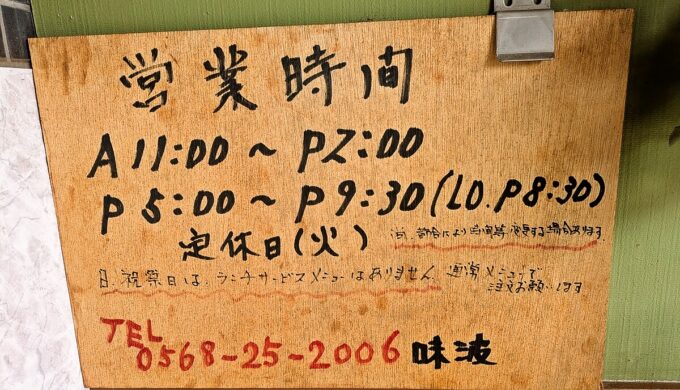 営業時間
A 11:00 ~ P2:00
P 5:00 ~ P9:30 (LO. P8:30)
定休日(火)
都合により 変更する場合あります。
日.祝祭日は、ランチサービスメニューはありません 通常メニューで
注文お願いします
TEL
0568-25-2006 味波